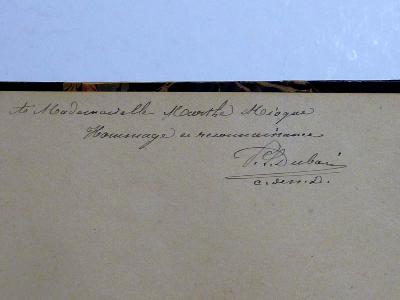 à Mademoiselle Marthe Mioque
Hommage et reconnaissance
Dubois